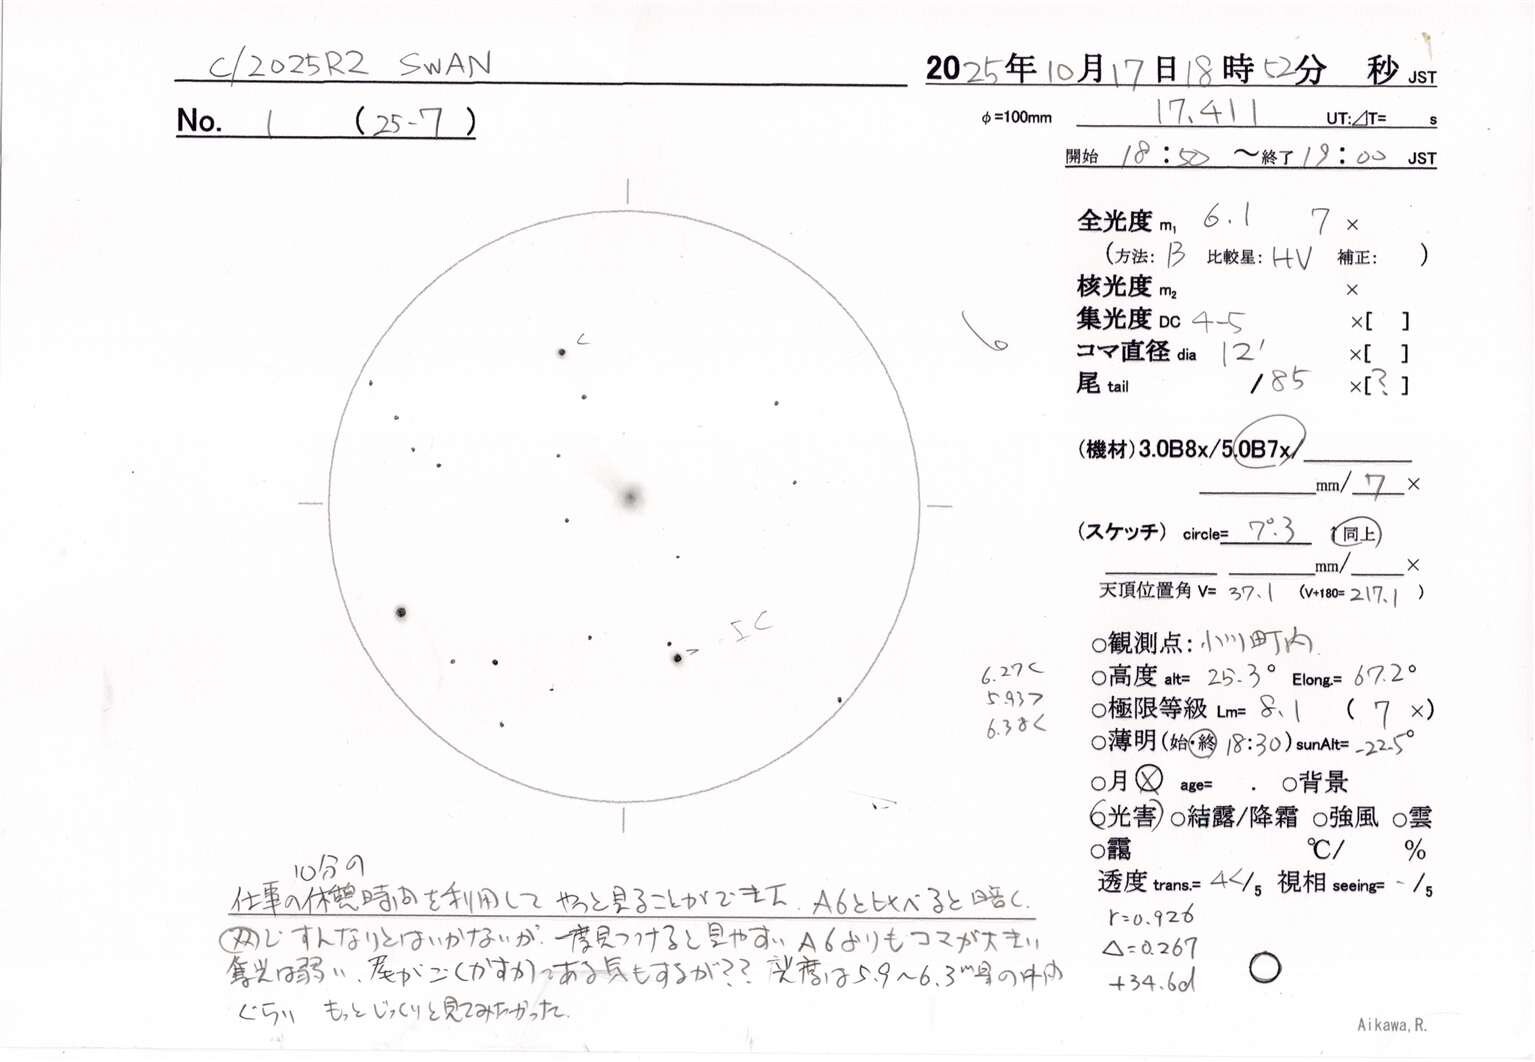 C/2025R2 SWAN
No. 1 (25-7)
2025年10月17日18時52分 秒 JST
φ=100mm 17.411 UT:⊿T= s
開始 18:50 ～終了 19:00 JST
全光度 m₁ 6.1 7 ×
(方法: B 比較星: HV 補正: )
核光度 m₂ ×
集光度 DC 4-5 ×[ ]
コマ直径 dia 12' ×[ ]
尾 tail /85 ×[?]
(機材) 3.0B8x/5.0B7x/
mm/ 7 ×
(スケッチ) circle= 7°.3 (同上)
mm/ ×
天頂位置角 V= 37.1 (V+180= 217.1 )
○観測点: 小川町内
○高度 alt= 25.3° Elong.= 67.2°
○極限等級 Lm= 8.1 ( 7 ×)
○薄明(始・終 18:30) sunAlt= -22.5°
○月 age= . ○背景
○光害 ○結露/降霜 ○強風 ○雲
○靄 ℃/ %
透度 trans.= 4</5 視相 seeing= -/5
r=0.926
Δ=0.267
+34.6d
C
C
6.27<
5.93>
6.38<
10分の
仕事の休憩時間を利用して やっと見ることができた. A6と比べると暗く.
同じ すんなりとはいかないが. 一度見つけると見やすい A6よりもコマが大きい
集光は弱い. 尾がごくかすかである気もするが?? 光度は5.9～6.3等の中間
ぐらい もっとじっくりと見てみたかった.
Aikawa,R.